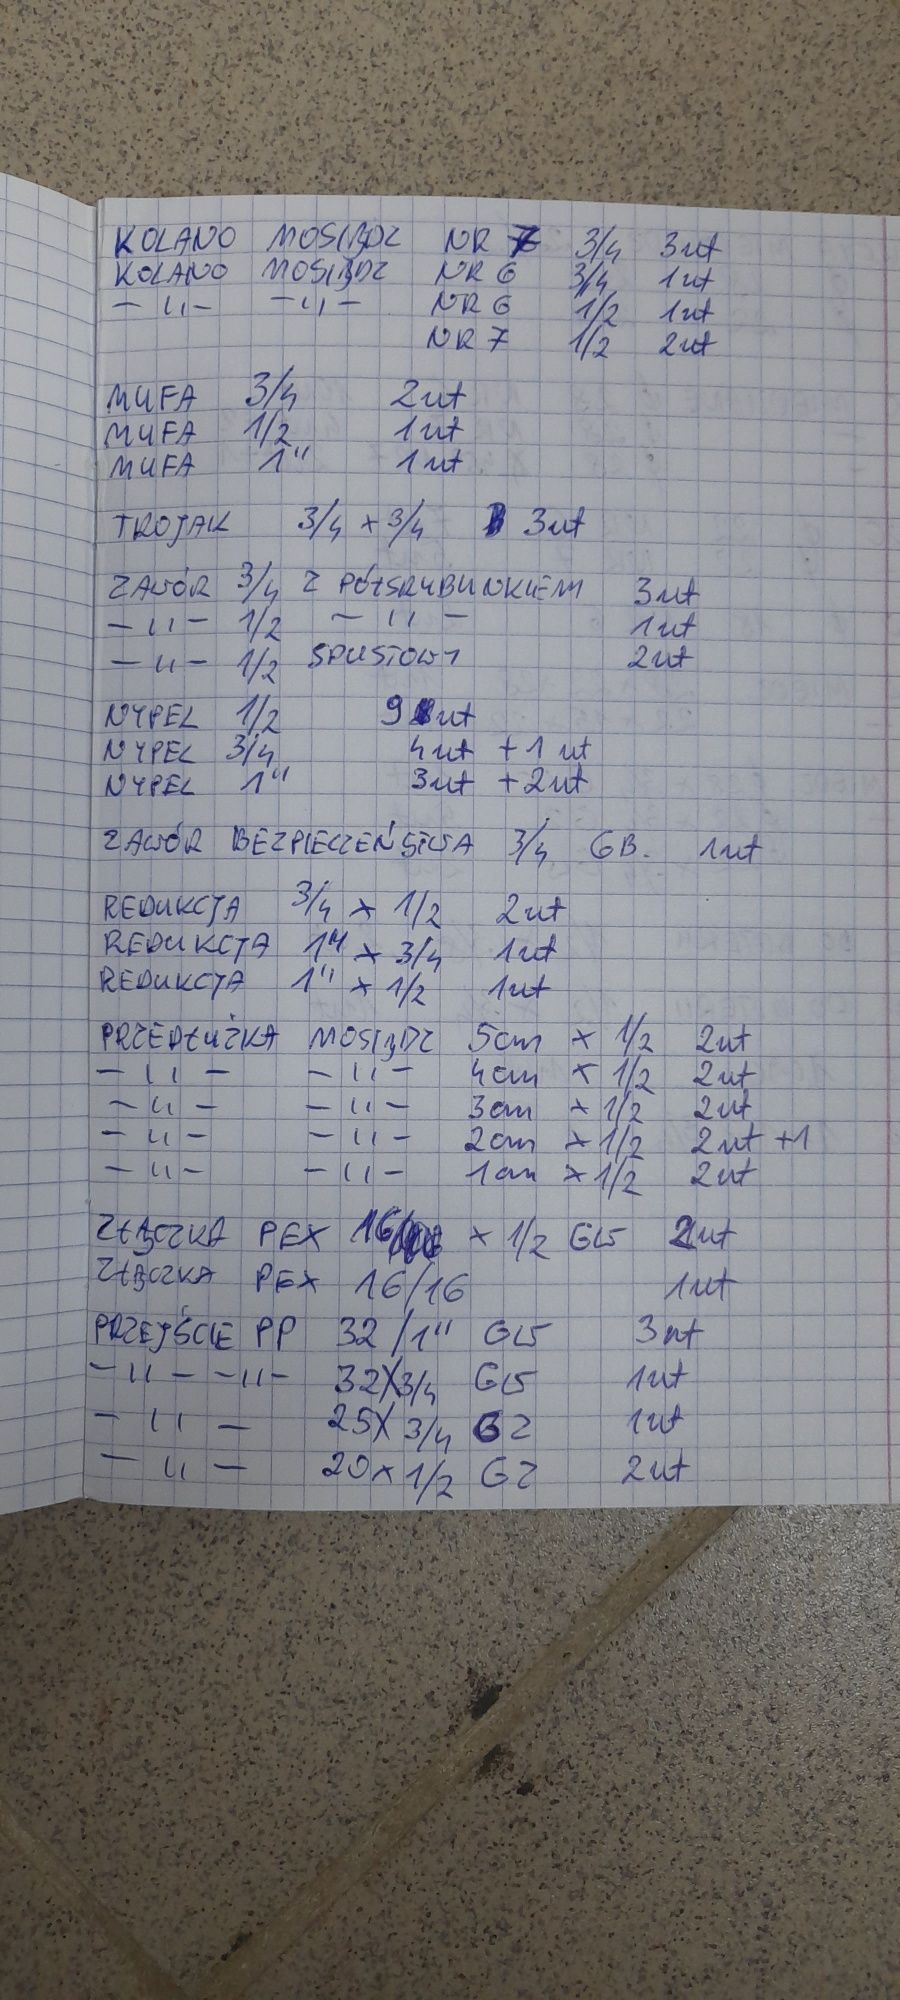 KOLANO MOSIĄDZ NR 7 3/4 3szt
KOLANO MOSIĄDZ NR 6 3/4 1szt
-"- -"- NR 6 1/2 1szt
NR 7 1/2 2szt
MUFA 3/4 2szt
MUFA 1/2 1szt
MUFA 1" 1szt
TROJAK 3/4 x 3/4 3szt
ZAWÓR 3/4 Z PÓŁSRUBUNKIEM 3szt
-"- 1/2 -"- 1szt
-"- 1/2 SPUSTOWY 2szt
NYPEL 1/2 9szt
NYPEL 3/4 4szt +1szt
NYPEL 1" 3szt +2szt
ZAWÓR BEZPIECZEŃSTWA 3/4 6B. 1szt
REDUKCJA 3/4 x 1/2 2szt
REDUKCJA 1" x 3/4 1szt
REDUKCJA 1" x 1/2 1szt
PRZEDŁUŻKA MOSIĄDZ 5cm x 1/2 2szt
-"- -"- 4cm x 1/2 2szt
-"- -"- 3cm x 1/2 2szt
-"- -"- 2cm x 1/2 2szt +1
-"- -"- 1cm x 1/2 2szt
ZŁĄCZKA PEX 16 x 1/2 GW 2szt
ZŁĄCZKA PEX 16/16 1szt
PRZEJŚCIE PP 32/1" GW 3szt
-"- -"- 32x3/4 GW 1szt
-"- 25x3/4 GZ 1szt
-"- 20x1/2 GZ 2szt